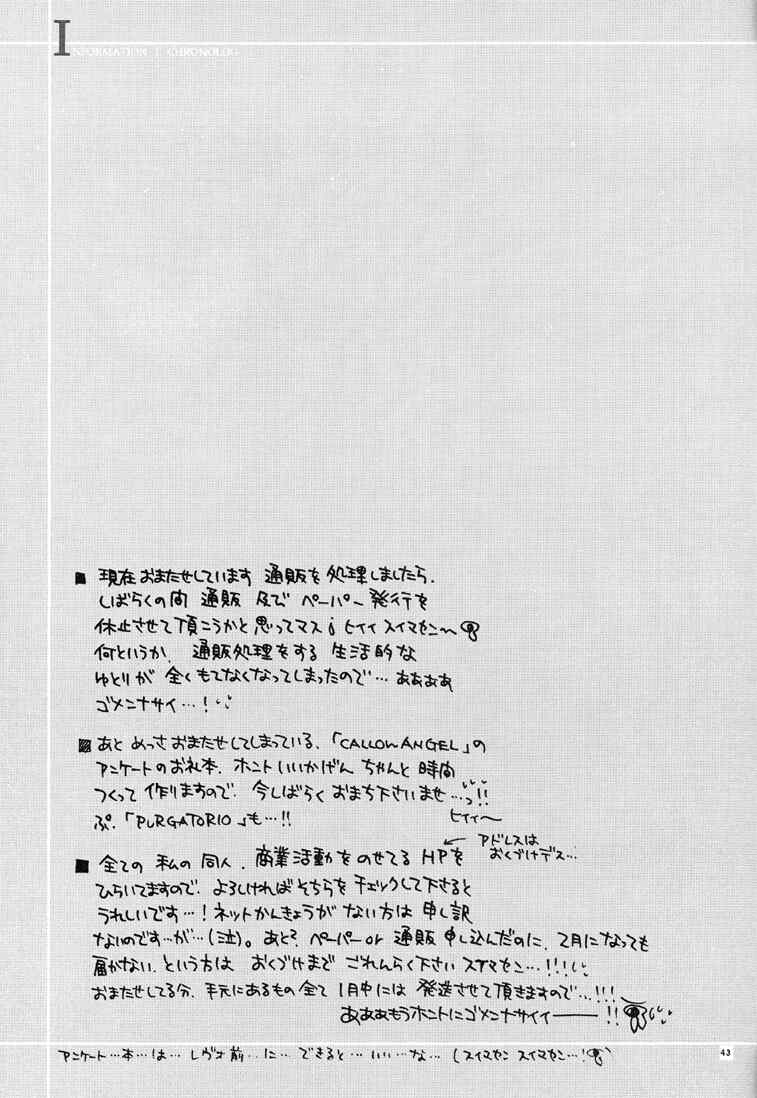 INFORMATION | CHRONOLOG
■ 現在おまたせしています 通販を処理しましたら、
しばらくの間 通販 及び ペーパー発行を
休止させて頂こうかと思ってマス¡ ヒイイ スイマセン〜
何というか、通販処理をする 生活的な
ゆとりが 全くもてなくなってしまったので…ああああ
ゴメンナサイ…!
■ あと めっさおまたせしてしまっている、「CALLOW ANGEL」の
アンケートのお礼本、ホントいいかげん ちゃんと時間
つくって作りますので、今しばらく おまち下さいませ…っ!!
ぷ、「PURGATORIO」も…!!
ヒイィ〜
■ 全ての 私の同人、商業活動をのせてるHPを
← アドレスは
おくづけデス…
ひらいてますので、よろしければそちらをチェックして下さると
うれしいです…!ネットかんきょうがない方は申し訳
ないのです…が…(泣)。あと、ペーパーor 通販申し込んだのに、2月になっても
届かない、という方は おくづけまで ごれんらく下さい スイマセン…!!!
おまたせしてる分、手元にあるもの全て 1月中には 発送させて頂きますので…!!!
あああもうホントにゴメンナサイィ――!!
アンケート…本…は… レヴォ前…に… できると…いい…な…(スイマセン スイマセン…!
43